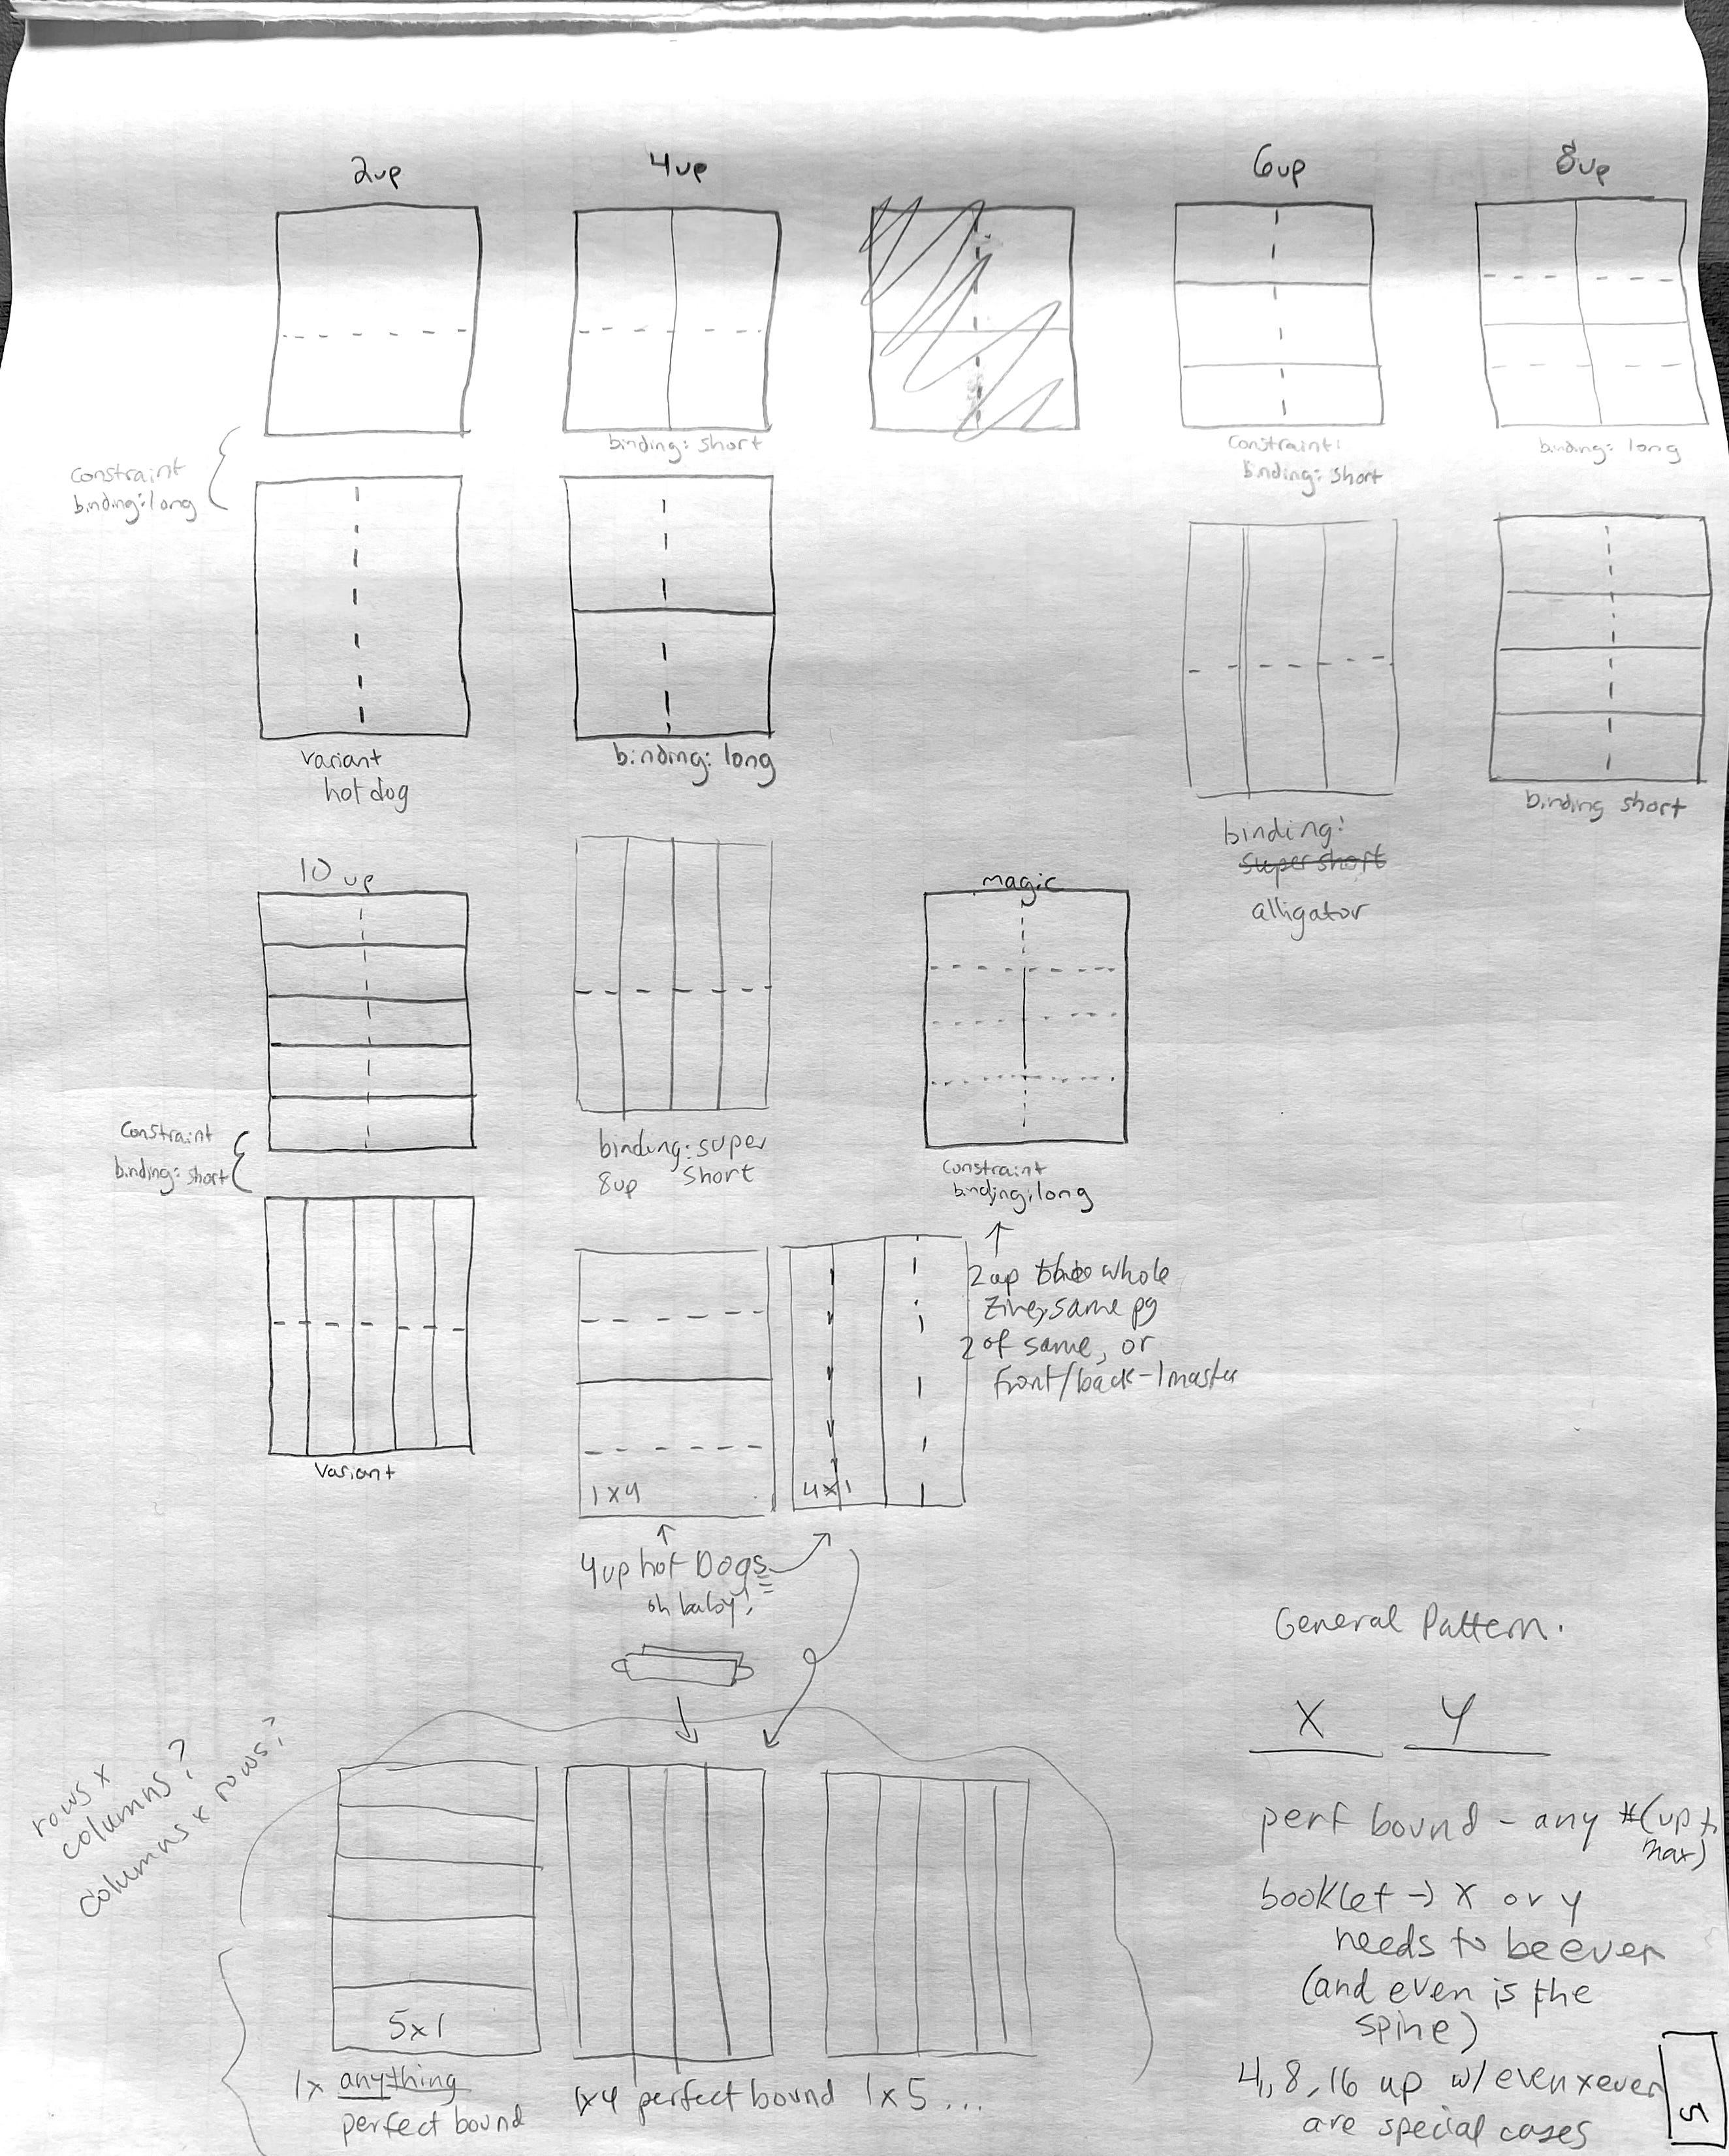 2up
4up
6up
8up
constraint
binding: long
binding: short
Constraint:
binding: short
binding: long
variant
hot dog
binding: long
binding:
super short
alligator
binding short
10 up
magic
Constraint
binding: short
binding: super
8up short
constraint
binding: long
2up whole
zine, same pg
2 of same, or
front/back - 1 master
Variant
1x4
4x1
4up hot Dogs
oh baby!
General Pattern.
X Y
rows x
columns?
columns x rows?
perf bound - any #(up to
max)
booklet → X or y
needs to be even
(and even is the
spine)
4, 8, 16 up w/ even x even
are special cases
5x1
1x anything
perfect bound
1x4 perfect bound
1x5...
5